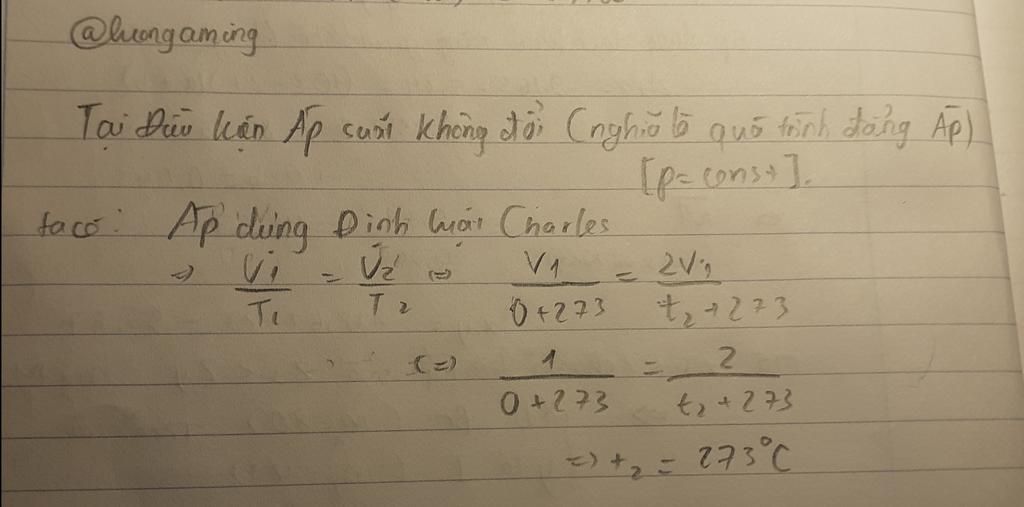 @luongaming
Tại Điều kiện Áp suất không đổi (nghĩa là quá trình đẳng Áp)
[p = const].
ta có: Áp dụng Định luật Charles
=> V1/T1 = V2/T2 <=> V1/(0+273) = 2V1/(t2+273)
<=> 1/(0+273) = 2/(t2+273)
=> t2 = 273°C